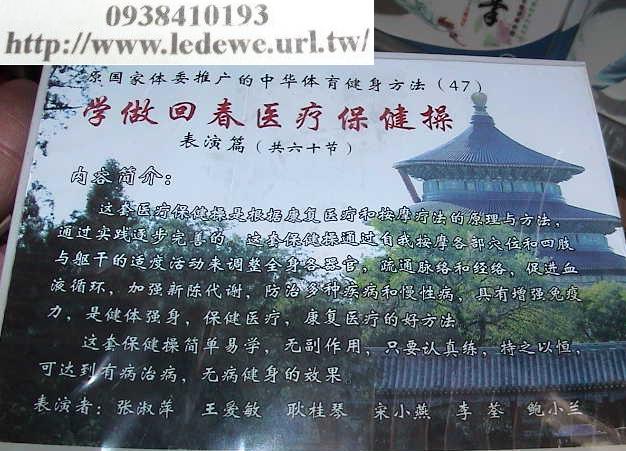 0938410193
http://www.ledewe.url.tw/
原国家体委推广的中华体育健身方法(47)
学做回春医疗保健操
表演篇(共六十节)
内容简介:
这套医疗保健操是根据康复医疗和按摩疗法的原理与方法,
通过实践逐步完善的。这套保健操通过自我按摩各部穴位和四肢
与躯干的适度活动来调整全身各器官,疏通脉络和经络,促进血
液循环,加强新陈代谢,防治多种疾病和慢性病,具有增强免疫
力,是健体强身,保健医疗,康复医疗的好方法
这套保健操简单易学,无副作用,只要认真练,持之以恒,
可达到有病治病,无病健身的效果。
表演者:张淑萍 王爱敏 耿桂琴 宋小燕 李荃 鲍小兰